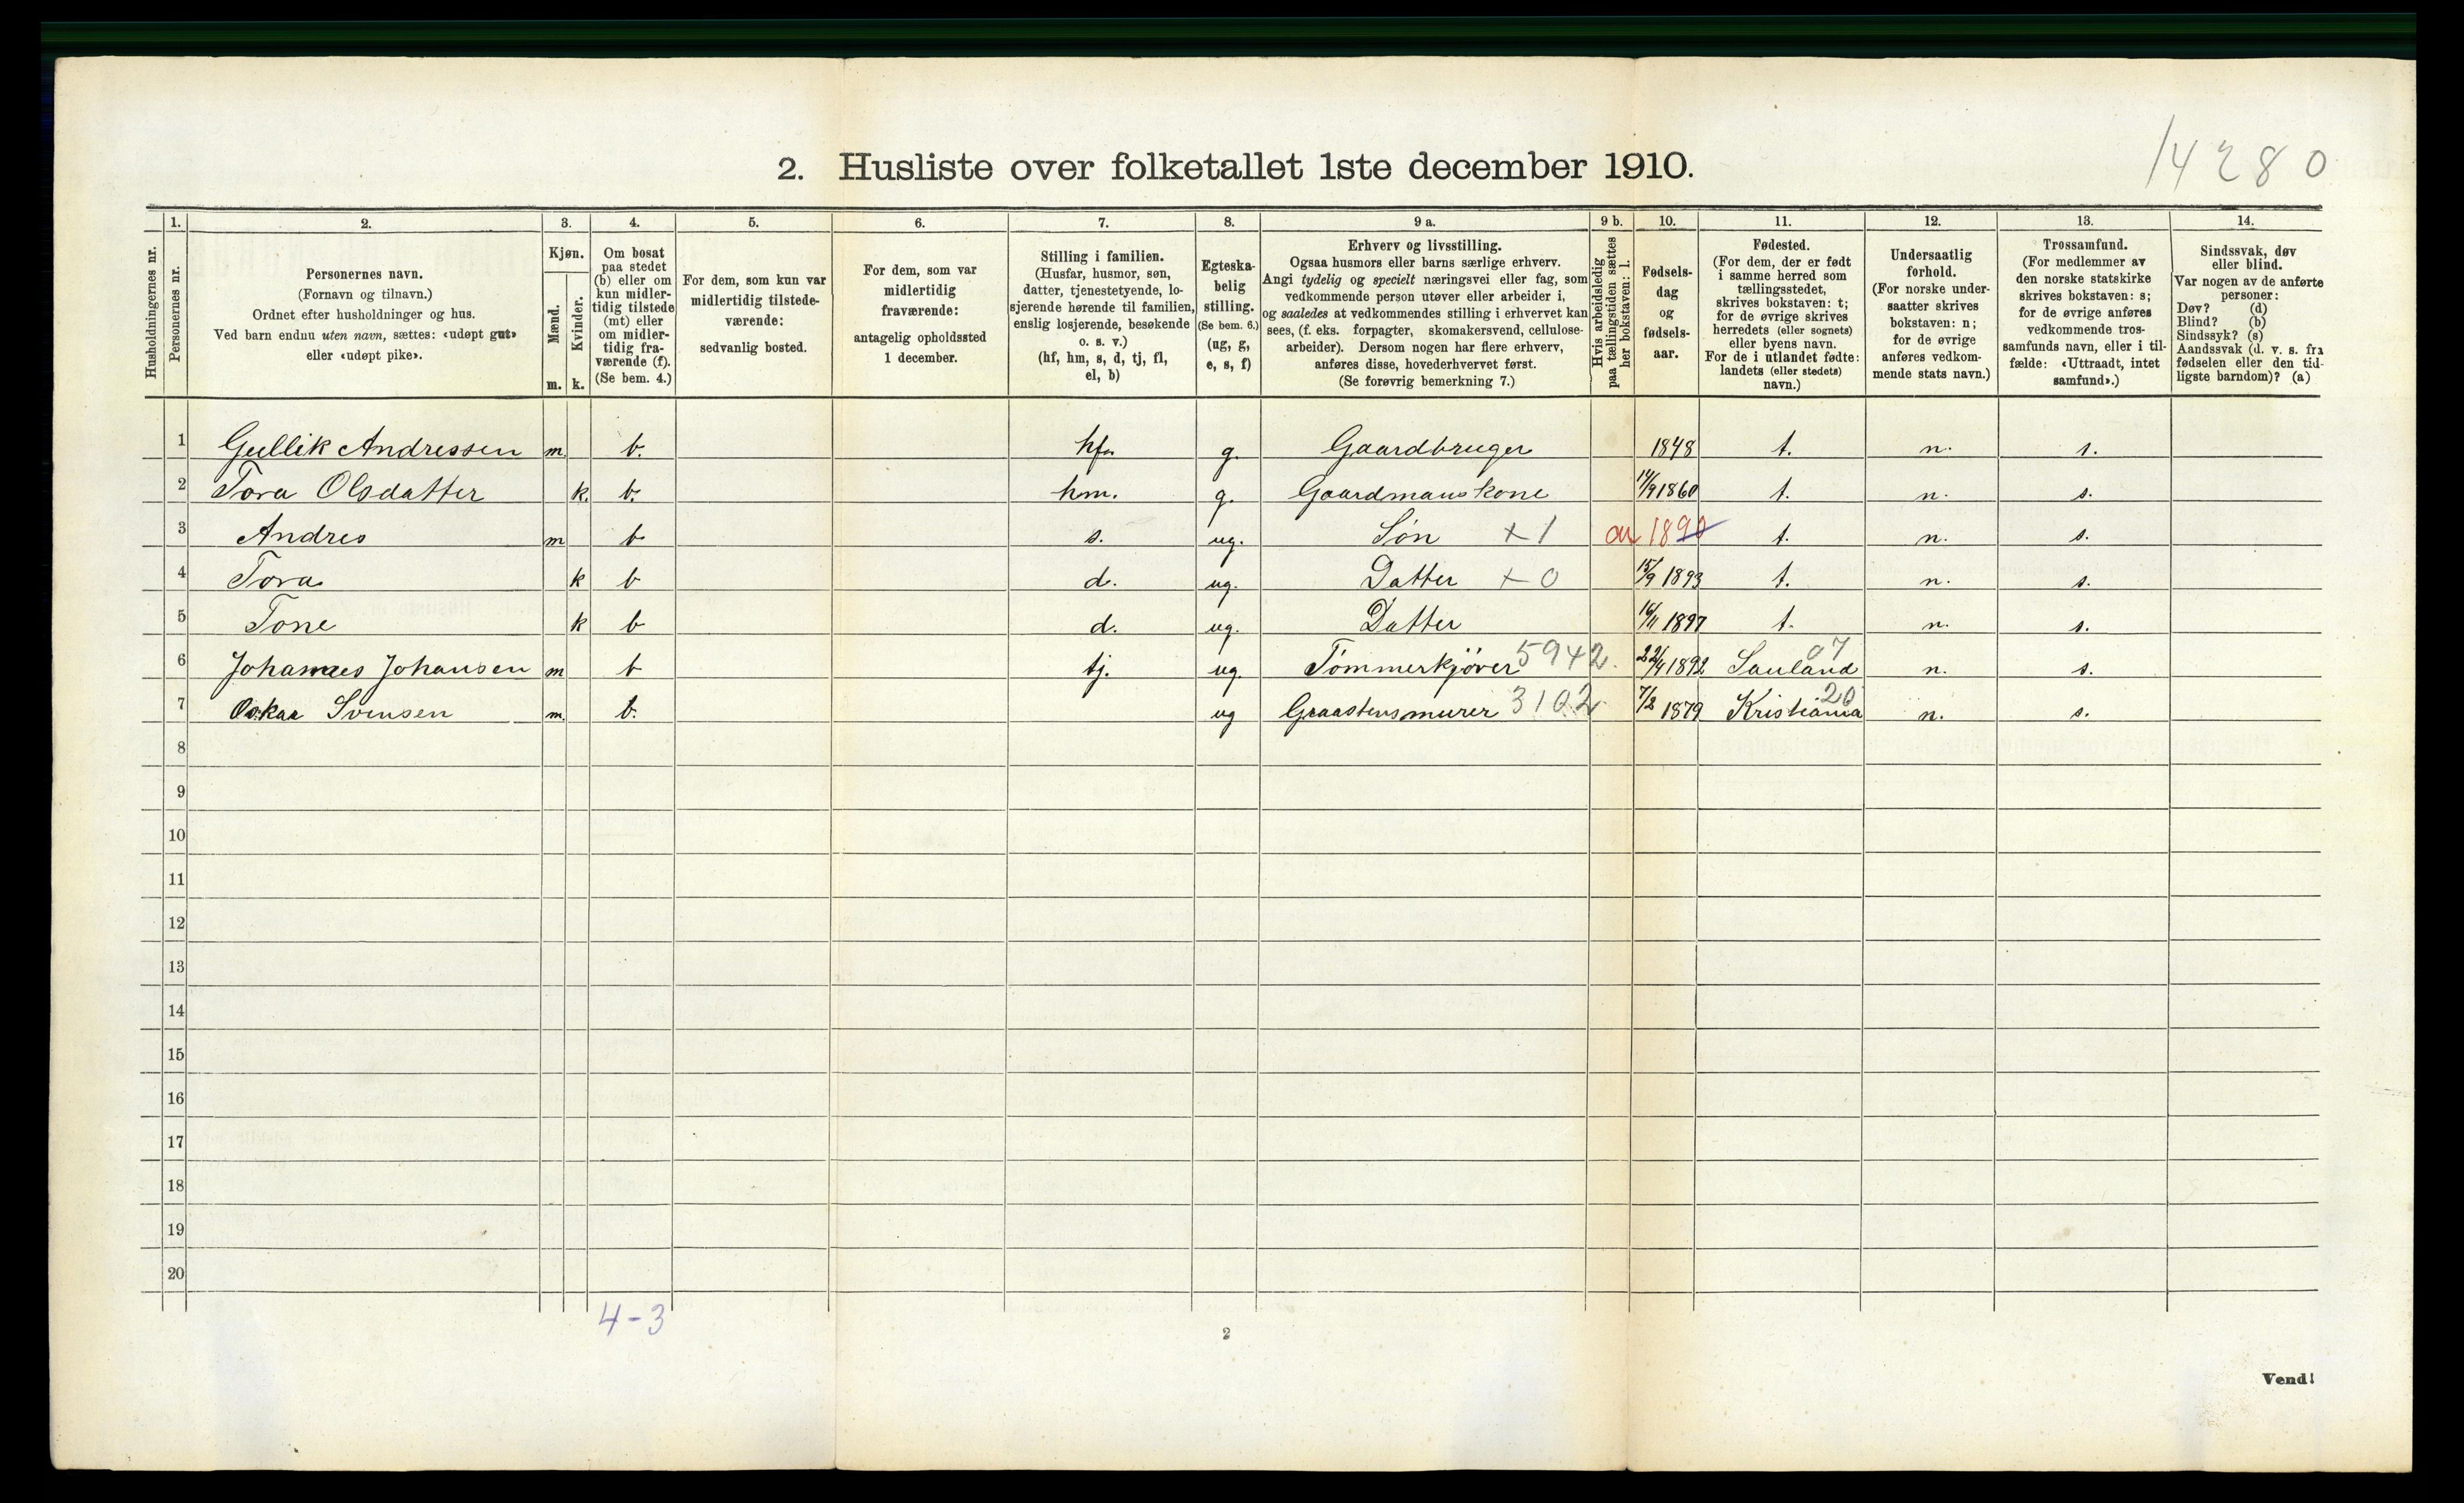 14280
2. Husliste over folketallet 1ste december 1910.
1. 2. 3. 4. 5. 6. 7. 8. 9 a. 9 b. 10. 11. 12. 13. 14.
Husholdningernes nr.
Personernes nr.
Personernes navn.
(Fornavn og tilnavn.)
Ordnet efter husholdninger og hus.
Ved barn endnu uten navn, sættes: «udøpt gut»
eller «udøpt pike».
Kjøn.
Mænd.
m.
Kvinder.
k.
Om bosat
paa stedet
(b) eller om
kun midler-
tidig tilstede
(mt) eller
om midler-
tidig fra-
værende (f).
(Se bem. 4.)
For dem, som kun var
midlertidig tilstede-
værende:
sedvanlig bosted.
For dem, som var
midlertidig
fraværende:
antagelig opholdssted
1 december.
Stilling i familien.
(Husfar, husmor, søn,
datter, tjenestetyende, lo-
sjerende hørende til familien,
enslig losjerende, besøkende
o. s. v.)
(hf, hm, s, d, tj, fl,
el, b)
Egteska-
belig
stilling.
(Se bem. 6.)
(ug, g,
e, s, f)
Erhverv og livsstilling.
Ogsaa husmors eller barns særlige erhverv.
Angi tydelig og specielt næringsvei eller fag, som
vedkommende person utøver eller arbeider i,
og saaledes at vedkommendes stilling i erhvervet kan
sees, (f. eks. forpagter, skomakersvend, cellulose-
arbeider). Dersom nogen har flere erhverv,
anføres disse, hovederhvervet først.
(Se forøvrig bemerkning 7.)
Hvis arbeidsledig
paa tællingstiden sættes
her bokstaven: l.
Fødsels-
dag
og
fødsels-
aar.
Fødested.
(For dem, der er født
i samme herred som
tællingsstedet,
skrives bokstaven: t;
for de øvrige skrives
herredets (eller sognets)
eller byens navn.
For de i utlandet fødte:
landets (eller stedets)
navn.)
Undersaatlig
forhold.
(For norske under-
saatter skrives
bokstaven: n;
for de øvrige
anføres vedkom-
mende stats navn.)
Trossamfund.
(For medlemmer av
den norske statskirke
skrives bokstaven: s;
for de øvrige anføres
vedkommende tros-
samfunds navn, eller i til-
fælde: «Uttraadt, intet
samfund».)
Sindssvak, døv
eller blind.
Var nogen av de anførte
personer:
Døv? (d)
Blind? (b)
Sindssyk? (s)
Aandssvak (d. v. s. fra
fødselen eller den tid-
ligste barndom)? (a)
1 Gullik Andressen m b. hf. g. Gaardbruger 1848 t. n. s.
2 Tora Olsdatter k. b. hm. g. Gaardmanskone 1860 t. n. s.
3 Andres m b s. ug. Søn + 1 1890 t. n. s.
4 Tora k b d. ug. Datter + 0 15/9 1893 t. n. s.
5 Tone k b d. ug. Datter 16/11 1897 t. n. s.
6 Johannes Johansen m b tj. ug. Tømmerkjører 5942. 22/4 1892 Sauland 07 n. s.
7 Oskar Svensen m. b. ug Graastensmurer 3102. 7/2 1879 Kristiania 20 n. s.
8
9
10
11
12
13
14
15
16
17
18
19
20
4-3
2
Vend!